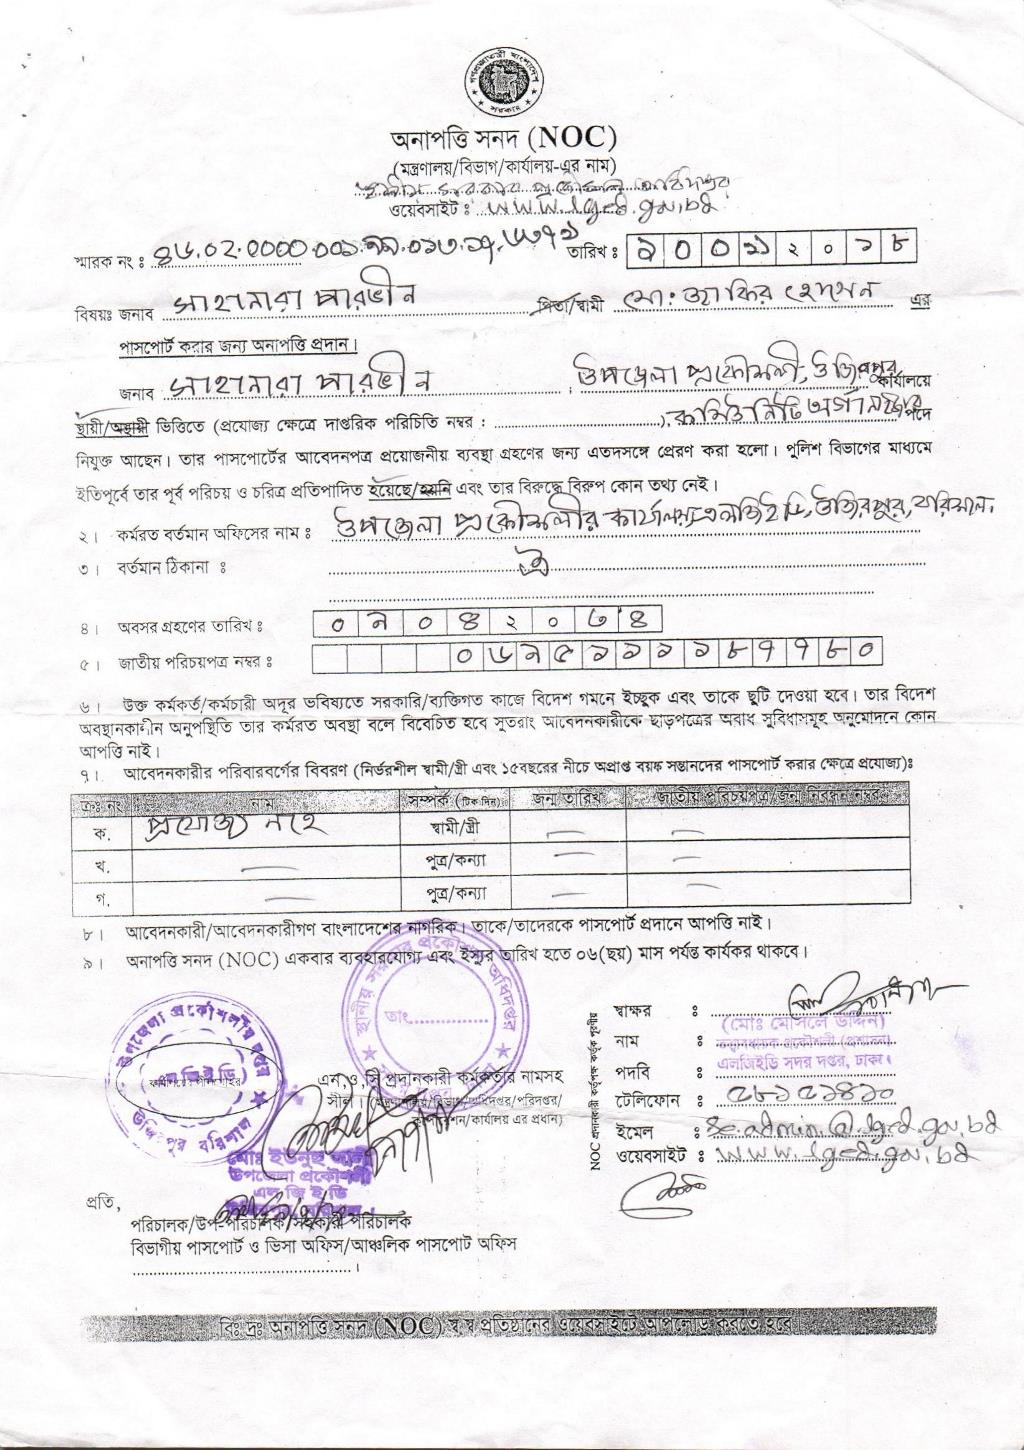 গণপ্রজাতন্ত্রী বাংলাদেশ সরকার
অনাপত্তি সনদ (NOC)
(মন্ত্রণালয়/বিভাগ/কার্যালয়-এর নাম)
স্থানীয় সরকার প্রকৌশল অধিদপ্তর
ওয়েবসাইট : www.lged.gov.bd
স্মারক নং : ৪৬.০২.০০০০.০০১.৯৯.০১৩.১৭. তারিখ : ১ ০ ০ ১ ২ ০ ১ ৮
বিষয়ঃ জনাব সাহানারা পারভীন পিতা/স্বামী মো: জাকির হোসেন এর
পাসপোর্ট করার জন্য অনাপত্তি প্রদান।
জনাব সাহানারা পারভীন , উপজেলা প্রকৌশলী, উজিরপুর কার্যালয়ে
স্থায়ী/অস্থায়ী ভিত্তিতে (প্রযোজ্য ক্ষেত্রে দাপ্তরিক পরিচিতি নম্বর : ), কমিউনিটি অর্গানাইজার পদে
নিযুক্ত আছেন। তার পাসপোর্টের আবেদনপত্র প্রয়োজনীয় ব্যবস্থা গ্রহণের জন্য এতদসঙ্গে প্রেরণ করা হলো। পুলিশ বিভাগের মাধ্যমে
ইতিপূর্বে তার পূর্ব পরিচয় ও চরিত্র প্রতিপাদিত হয়েছে/হয়নি এবং তার বিরুদ্ধে বিরুপ কোন তথ্য নেই।
২। কর্মরত বর্তমান অফিসের নাম : উপজেলা প্রকৌশলীর কার্যালয়, এলজিইডি, উজিরপুর, বরিশাল।
৩। বর্তমান ঠিকানা : ঐ
৪। অবসর গ্রহণের তারিখ : ০ ৯ ০ ৪ ২ ০ ৩ ৪
৫। জাতীয় পরিচয়পত্র নম্বর : ০ ৬ ৯ ৫ ১ ১ ১ ১ ৮ ৭ ৭ ৮ ০
৬। উক্ত কর্মকর্ত/কর্মচারী অদূর ভবিষ্যতে সরকারি/ব্যক্তিগত কাজে বিদেশ গমনে ইচ্ছুক এবং তাকে ছুটি দেওয়া হবে। তার বিদেশ
অবস্থানকালীন অনুপস্থিতি তার কর্মরত অবস্থা বলে বিবেচিত হবে সুতরাং আবেদনকারীকে ছাড়পত্রের অবাধ সুবিধাসমূহ অনুমোদনে কোন
আপত্তি নাই।
৭। আবেদনকারীর পরিবারবর্গের বিবরণ (নির্ভরশীল স্বামী/স্ত্রী এবং ১৫বছরের নীচে অপ্রাপ্ত বয়ক্ষ সন্তানদের পাসপোর্ট করার ক্ষেত্রে প্রযোজ্য)ঃ
ক্রঃ নং নাম সম্পর্ক (টিক দিন) জন্ম তারিখ জাতীয় পরিচয়পত্র/জন্ম নিবন্ধন নম্বর
ক. প্রযোজ্য নহে স্বামী/স্ত্রী — —
খ. — পুত্র/কন্যা — —
গ. — পুত্র/কন্যা — —
৮। আবেদনকারী/আবেদনকারীগণ বাংলাদেশের নাগরিক। তাকে/তাদেরকে পাসপোর্ট প্রদানে আপত্তি নাই।
৯। অনাপত্তি সনদ (NOC) একবার ব্যবহারযোগ্য এবং ইস্যুর তারিখ হতে ০৬(ছয়) মাস পর্যন্ত কার্যকর থাকবে।
উপজেলা প্রকৌশলীর দপ্তর
এলজিইডি
উজিরপুর বরিশাল
স্থানীয় সরকার প্রকৌশল অধিদপ্তর
তাং
এন,ও,সি প্রদানকারী কর্মকর্তার নামসহ
সীল। (মন্ত্রণালয়/বিভাগ/অধিদপ্তর/পরিদপ্তর/
কর্পোরেশন/কার্যালয় এর প্রধান)
মোঃ ইউনুছ আলী
উপজেলা প্রকৌশলী
এল জি ই ডি
NOC প্রদানকারী কর্তৃপক্ষ কর্তৃক পূরণীয়
স্বাক্ষর :
নাম : (মোঃ মোসলে উদ্দিন)
তত্ত্বাবধায়ক প্রকৌশলী (প্রশাসন)
পদবি : এলজিইডি সদর দপ্তর, ঢাকা।
টেলিফোন :
ইমেল : se.admin@lged.gov.bd
ওয়েবসাইট : www.lged.gov.bd
প্রতি,
পরিচালক/উপ-পরিচালক/সহকারী পরিচালক
বিভাগীয় পাসপোর্ট ও ভিসা অফিস/আঞ্চলিক পাসপোট অফিস
বিঃ দ্রঃ অনাপত্তি সনদ (NOC) স্ব স্ব প্রতিষ্ঠানের ওয়েবসাইটে আপলোড করতে হবে।